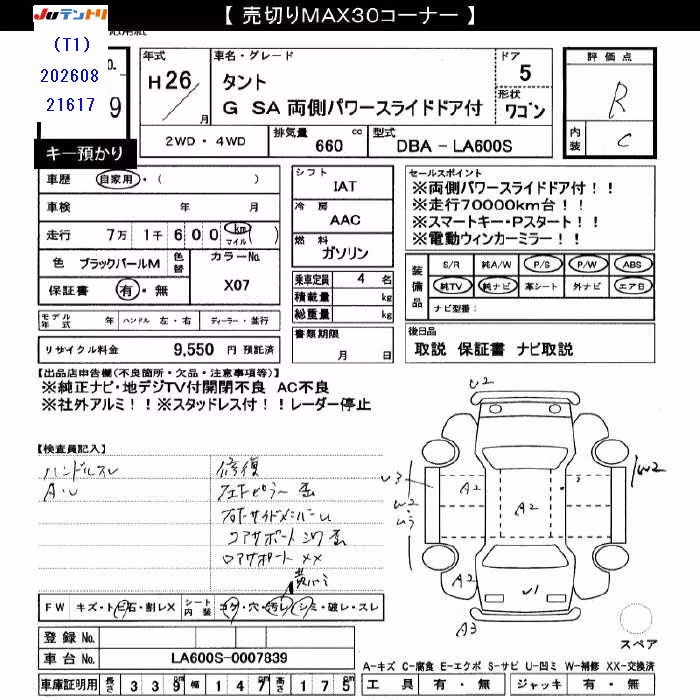 【 売切りMAX30コーナー 】
JUテントリ
(T1)
202608
21617
9
キー預かり
年式
H26
月
車名・グレード
タント
G SA 両側パワースライドドア付
ドア
5
形状
ワゴン
評価点
R
内装
C
2WD・4WD
排気量
660 cc
型式
DBA - LA600S
車歴
自家用・( )
車検 年 月
走行 7万 1千 6 0 0 km マイル ( )
色 ブラックパールM
色替
カラーNo.
X07
保証書 有・無
モデル年式 年
ハンドル 左・右
ディーラー・並行
リサイクル料金 9,550 円 預託済
シフト
IAT
冷房
AAC
燃料
ガソリン
乗車定員 4 名
積載量 kg
総重量 kg
書類期限
月 日
セールスポイント
※両側パワースライドドア付!!
※走行70000km台!!
※スマートキー・Pスタート!!
※電動ウィンカーミラー!!
装備品
S/R 純A/W P/S P/W ABS
純TV 純ナビ 革シート 外ナビ エアB
ナビ型番:
後日品
取説 保証書 ナビ取説
【出品店申告欄(不良箇所・欠品・注意事項等)】
※純正ナビ・地デジTV付開閉不良 AC不良
※社外アルミ!!※スタッドレス付!!レーダー停止
【検査員記入】
ハンドルスレ
A・U
修復
コアサポート
ロアサポート XX
U2
U3
W2
U3
A2
A2
A2
W2
U1
A3
FW キズ・トビ石・割レX
シート内装 コゲ・穴・汚レ・シミ・破レ・スレ
登録 No.
車台 No. LA600S-0007839
車庫証明用 長さ 3 3 9 幅 1 4 7 高さ 1 7 5
スペア
A-キズ C-腐食 E-エクボ S-サビ U-凹ミ W-補修 XX-交換済
工具 有・無 ジャッキ 有・無